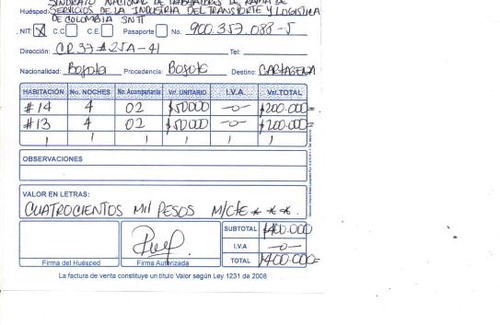 SINDICATO NACIONAL DE TRABAJADORES DE RAMA DE
Huésped: SERVICIOS DE LA INDUSTRIA DEL TRANSPORTE Y LOGISTICA
DE COLOMBIA SNTT
NIT X C.C. C.E. Pasaporte No. 900.357.088-5
Dirección: CR 37 # 25A-41 Tel:
Nacionalidad: Bogota Procedencia: Bogota Destino: CARTAGENA
HABITACIÓN No. NOCHES No. Acompañante Vr. UNITARIO I.V.A. Vr. TOTAL
#14 4 02 $50000 -0- $200.000=
#13 4 02 $50000 -0- $200.000=
OBSERVACIONES
VALOR EN LETRAS:
CUATROCIENTOS Mil PESOS M/Cte * * *
SUBTOTAL $400.000
I.V.A -0-
TOTAL $400.000=
Firma del Huésped Firma Autorizada
La factura de venta constituye un título Valor según Ley 1231 de 2008